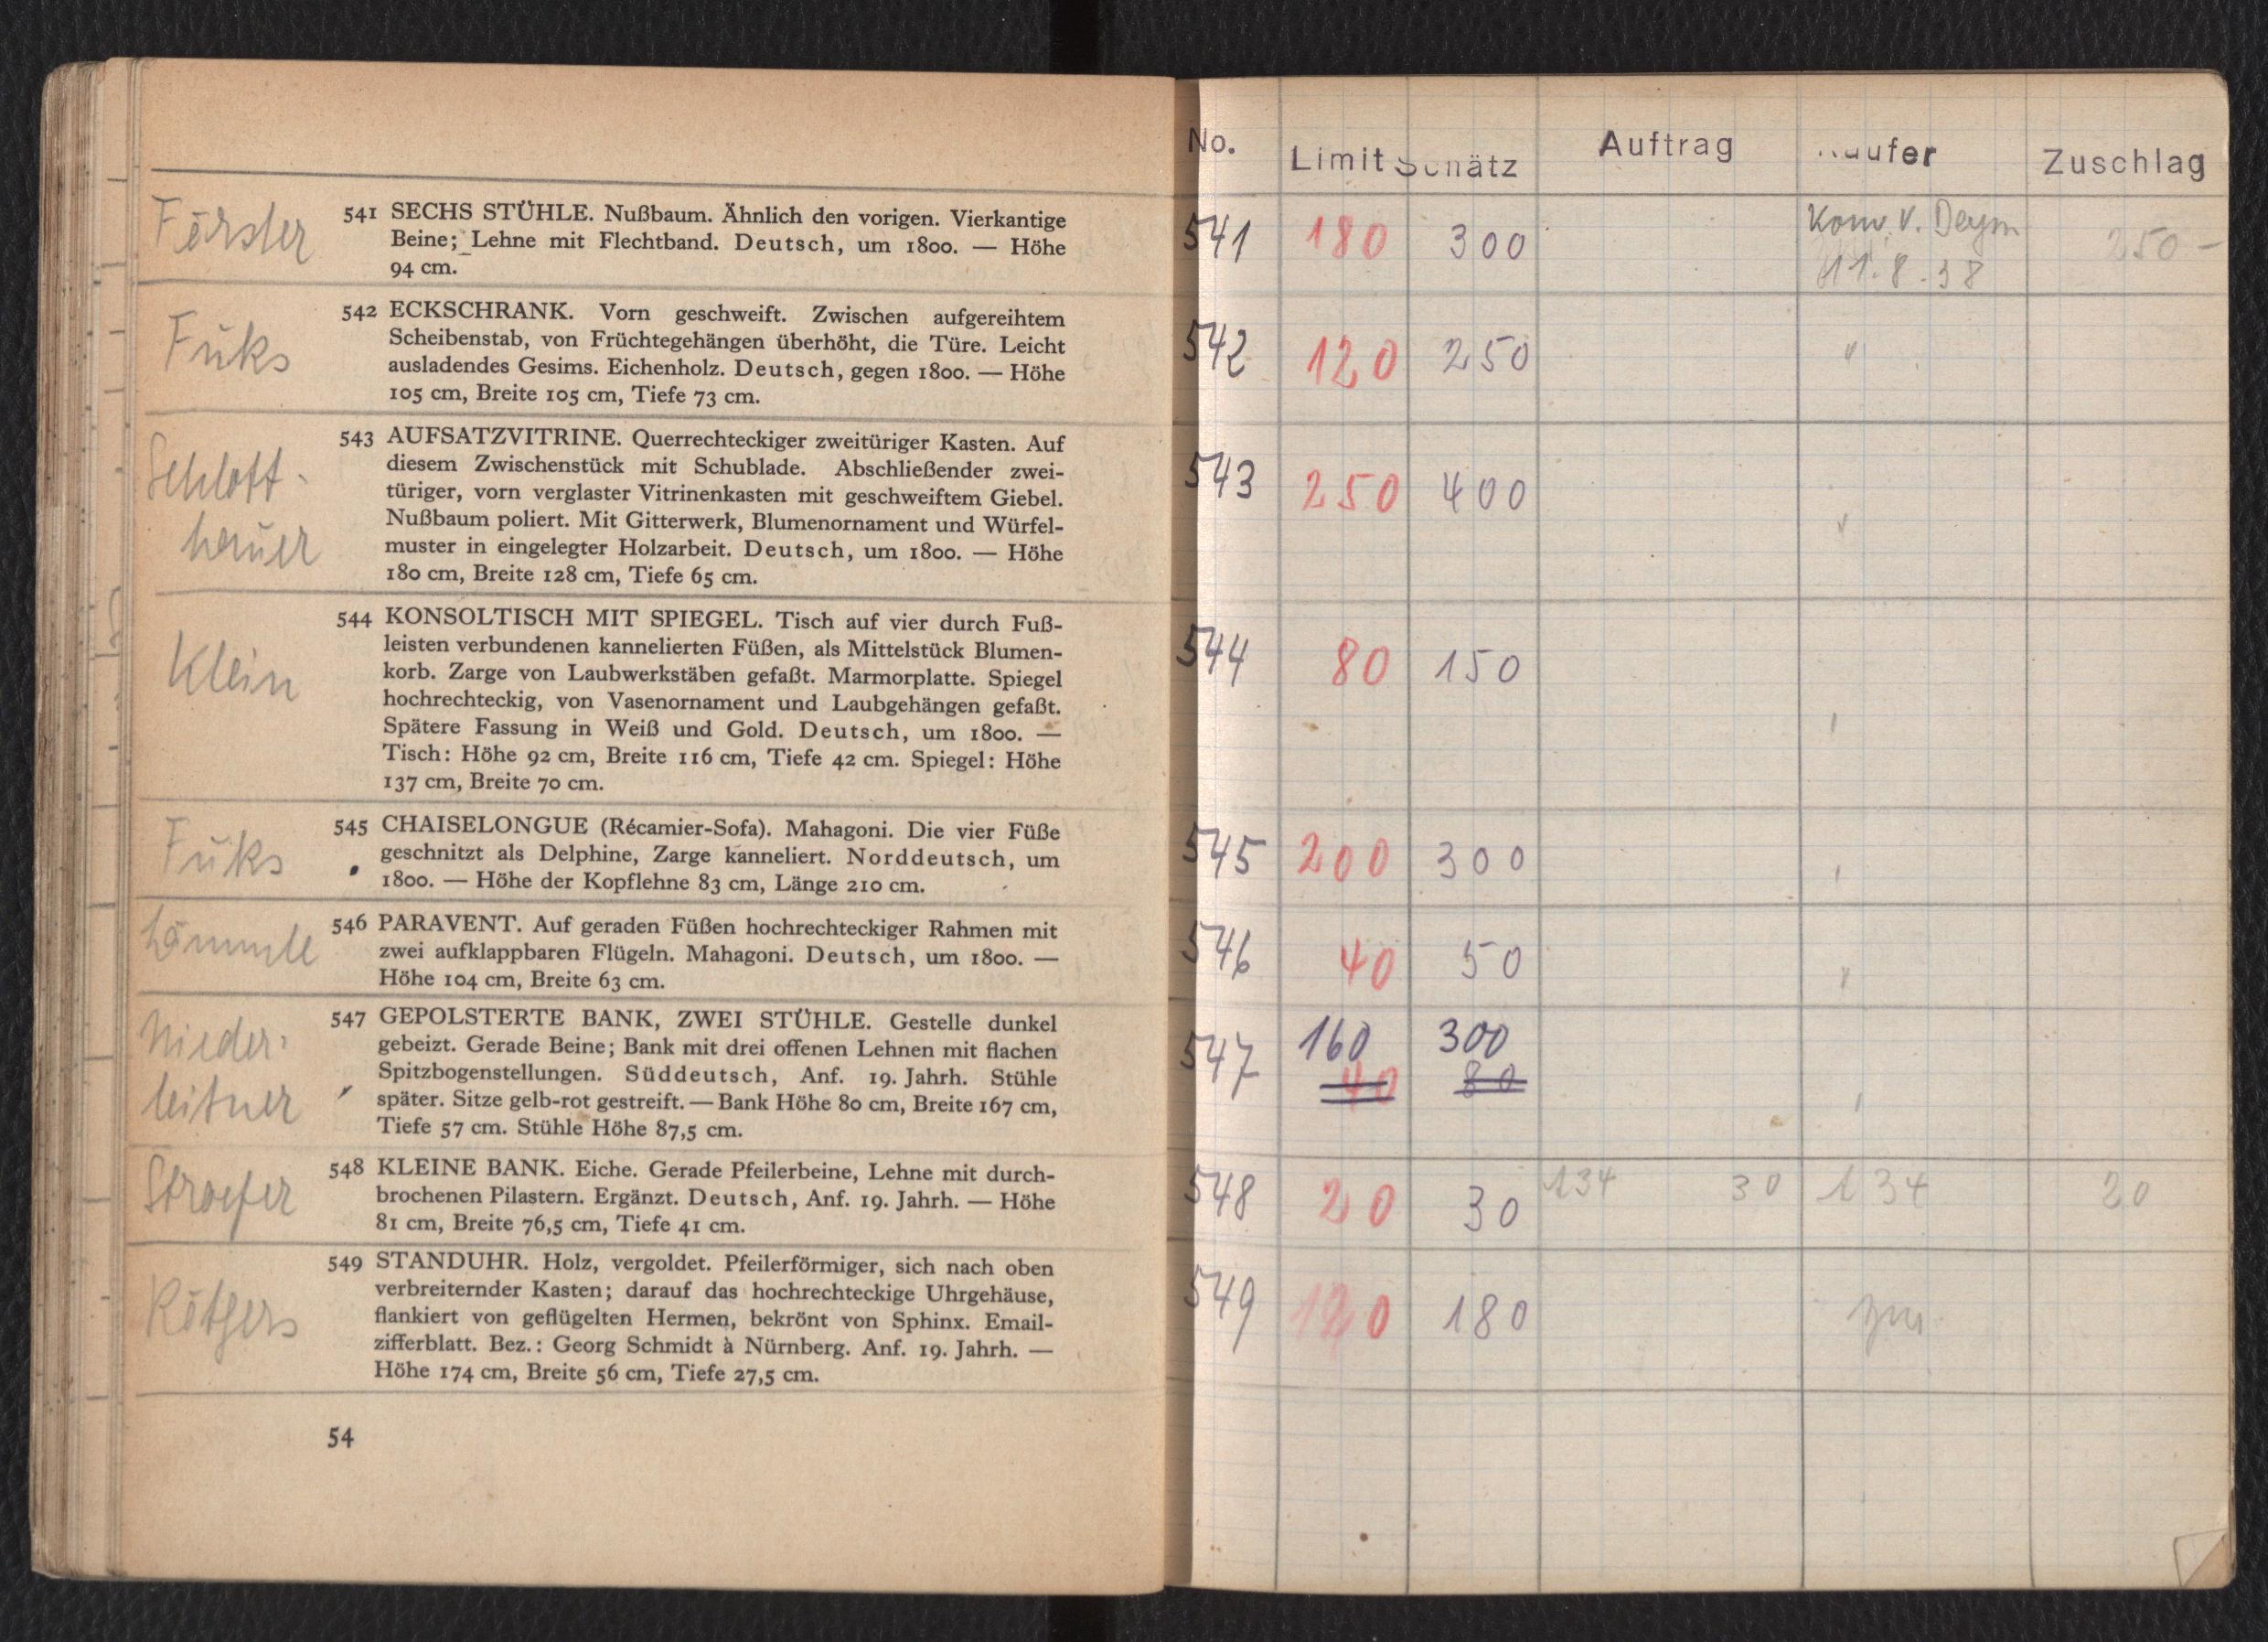 Förster
541 SECHS STÜHLE. Nußbaum. Ähnlich den vorigen. Vierkantige
Beine; Lehne mit Flechtband. Deutsch, um 1800. — Höhe
94 cm.
Fuks
542 ECKSCHRANK. Vorn geschweift. Zwischen aufgereihtem
Scheibenstab, von Früchtegehängen überhöht, die Türe. Leicht
ausladendes Gesims. Eichenholz. Deutsch, gegen 1800. — Höhe
105 cm, Breite 105 cm, Tiefe 73 cm.
Schlott-
hauer
543 AUFSATZVITRINE. Querrechteckiger zweitüriger Kasten. Auf
diesem Zwischenstück mit Schublade. Abschließender zwei-
türiger, vorn verglaster Vitrinenkasten mit geschweiftem Giebel.
Nußbaum poliert. Mit Gitterwerk, Blumenornament und Würfel-
muster in eingelegter Holzarbeit. Deutsch, um 1800. — Höhe
180 cm, Breite 128 cm, Tiefe 65 cm.
Klein
544 KONSOLTISCH MIT SPIEGEL. Tisch auf vier durch Fuß-
leisten verbundenen kannelierten Füßen, als Mittelstück Blumen-
korb. Zarge von Laubwerkstäben gefaßt. Marmorplatte. Spiegel
hochrechteckig, von Vasenornament und Laubgehängen gefaßt.
Spätere Fassung in Weiß und Gold. Deutsch, um 1800. —
Tisch: Höhe 92 cm, Breite 116 cm, Tiefe 42 cm. Spiegel: Höhe
137 cm, Breite 70 cm.
Fuks
545 CHAISELONGUE (Récamier-Sofa). Mahagoni. Die vier Füße
geschnitzt als Delphine, Zarge kanneliert. Norddeutsch, um
1800. — Höhe der Kopflehne 83 cm, Länge 210 cm.
Lämmle
546 PARAVENT. Auf geraden Füßen hochrechteckiger Rahmen mit
zwei aufklappbaren Flügeln. Mahagoni. Deutsch, um 1800. —
Höhe 104 cm, Breite 63 cm.
Nieder-
leitner
547 GEPOLSTERTE BANK, ZWEI STÜHLE. Gestelle dunkel
gebeizt. Gerade Beine; Bank mit drei offenen Lehnen mit flachen
Spitzbogenstellungen. Süddeutsch, Anf. 19. Jahrh. Stühle
später. Sitze gelb-rot gestreift. — Bank Höhe 80 cm, Breite 167 cm,
Tiefe 57 cm. Stühle Höhe 87,5 cm.
Stroefer
548 KLEINE BANK. Eiche. Gerade Pfeilerbeine, Lehne mit durch-
brochenen Pilastern. Ergänzt. Deutsch, Anf. 19. Jahrh. — Höhe
81 cm, Breite 76,5 cm, Tiefe 41 cm.
Rötgers
549 STANDUHR. Holz, vergoldet. Pfeilerförmiger, sich nach oben
verbreiternder Kasten; darauf das hochrechteckige Uhrgehäuse,
flankiert von geflügelten Hermen, bekrönt von Sphinx. Email-
zifferblatt. Bez.: Georg Schmidt à Nürnberg. Anf. 19. Jahrh. —
Höhe 174 cm, Breite 56 cm, Tiefe 27,5 cm.
54
No. Limit Schätz Auftrag Käufer Zuschlag
541 180 300 Kom. V. Deym 250 -
11.8.38
542 120 250
543 250 400
544 80 150
545 200 300
546 40 50
547 160 300
40 80
548 20 30 134 30 134 20
549 120 180